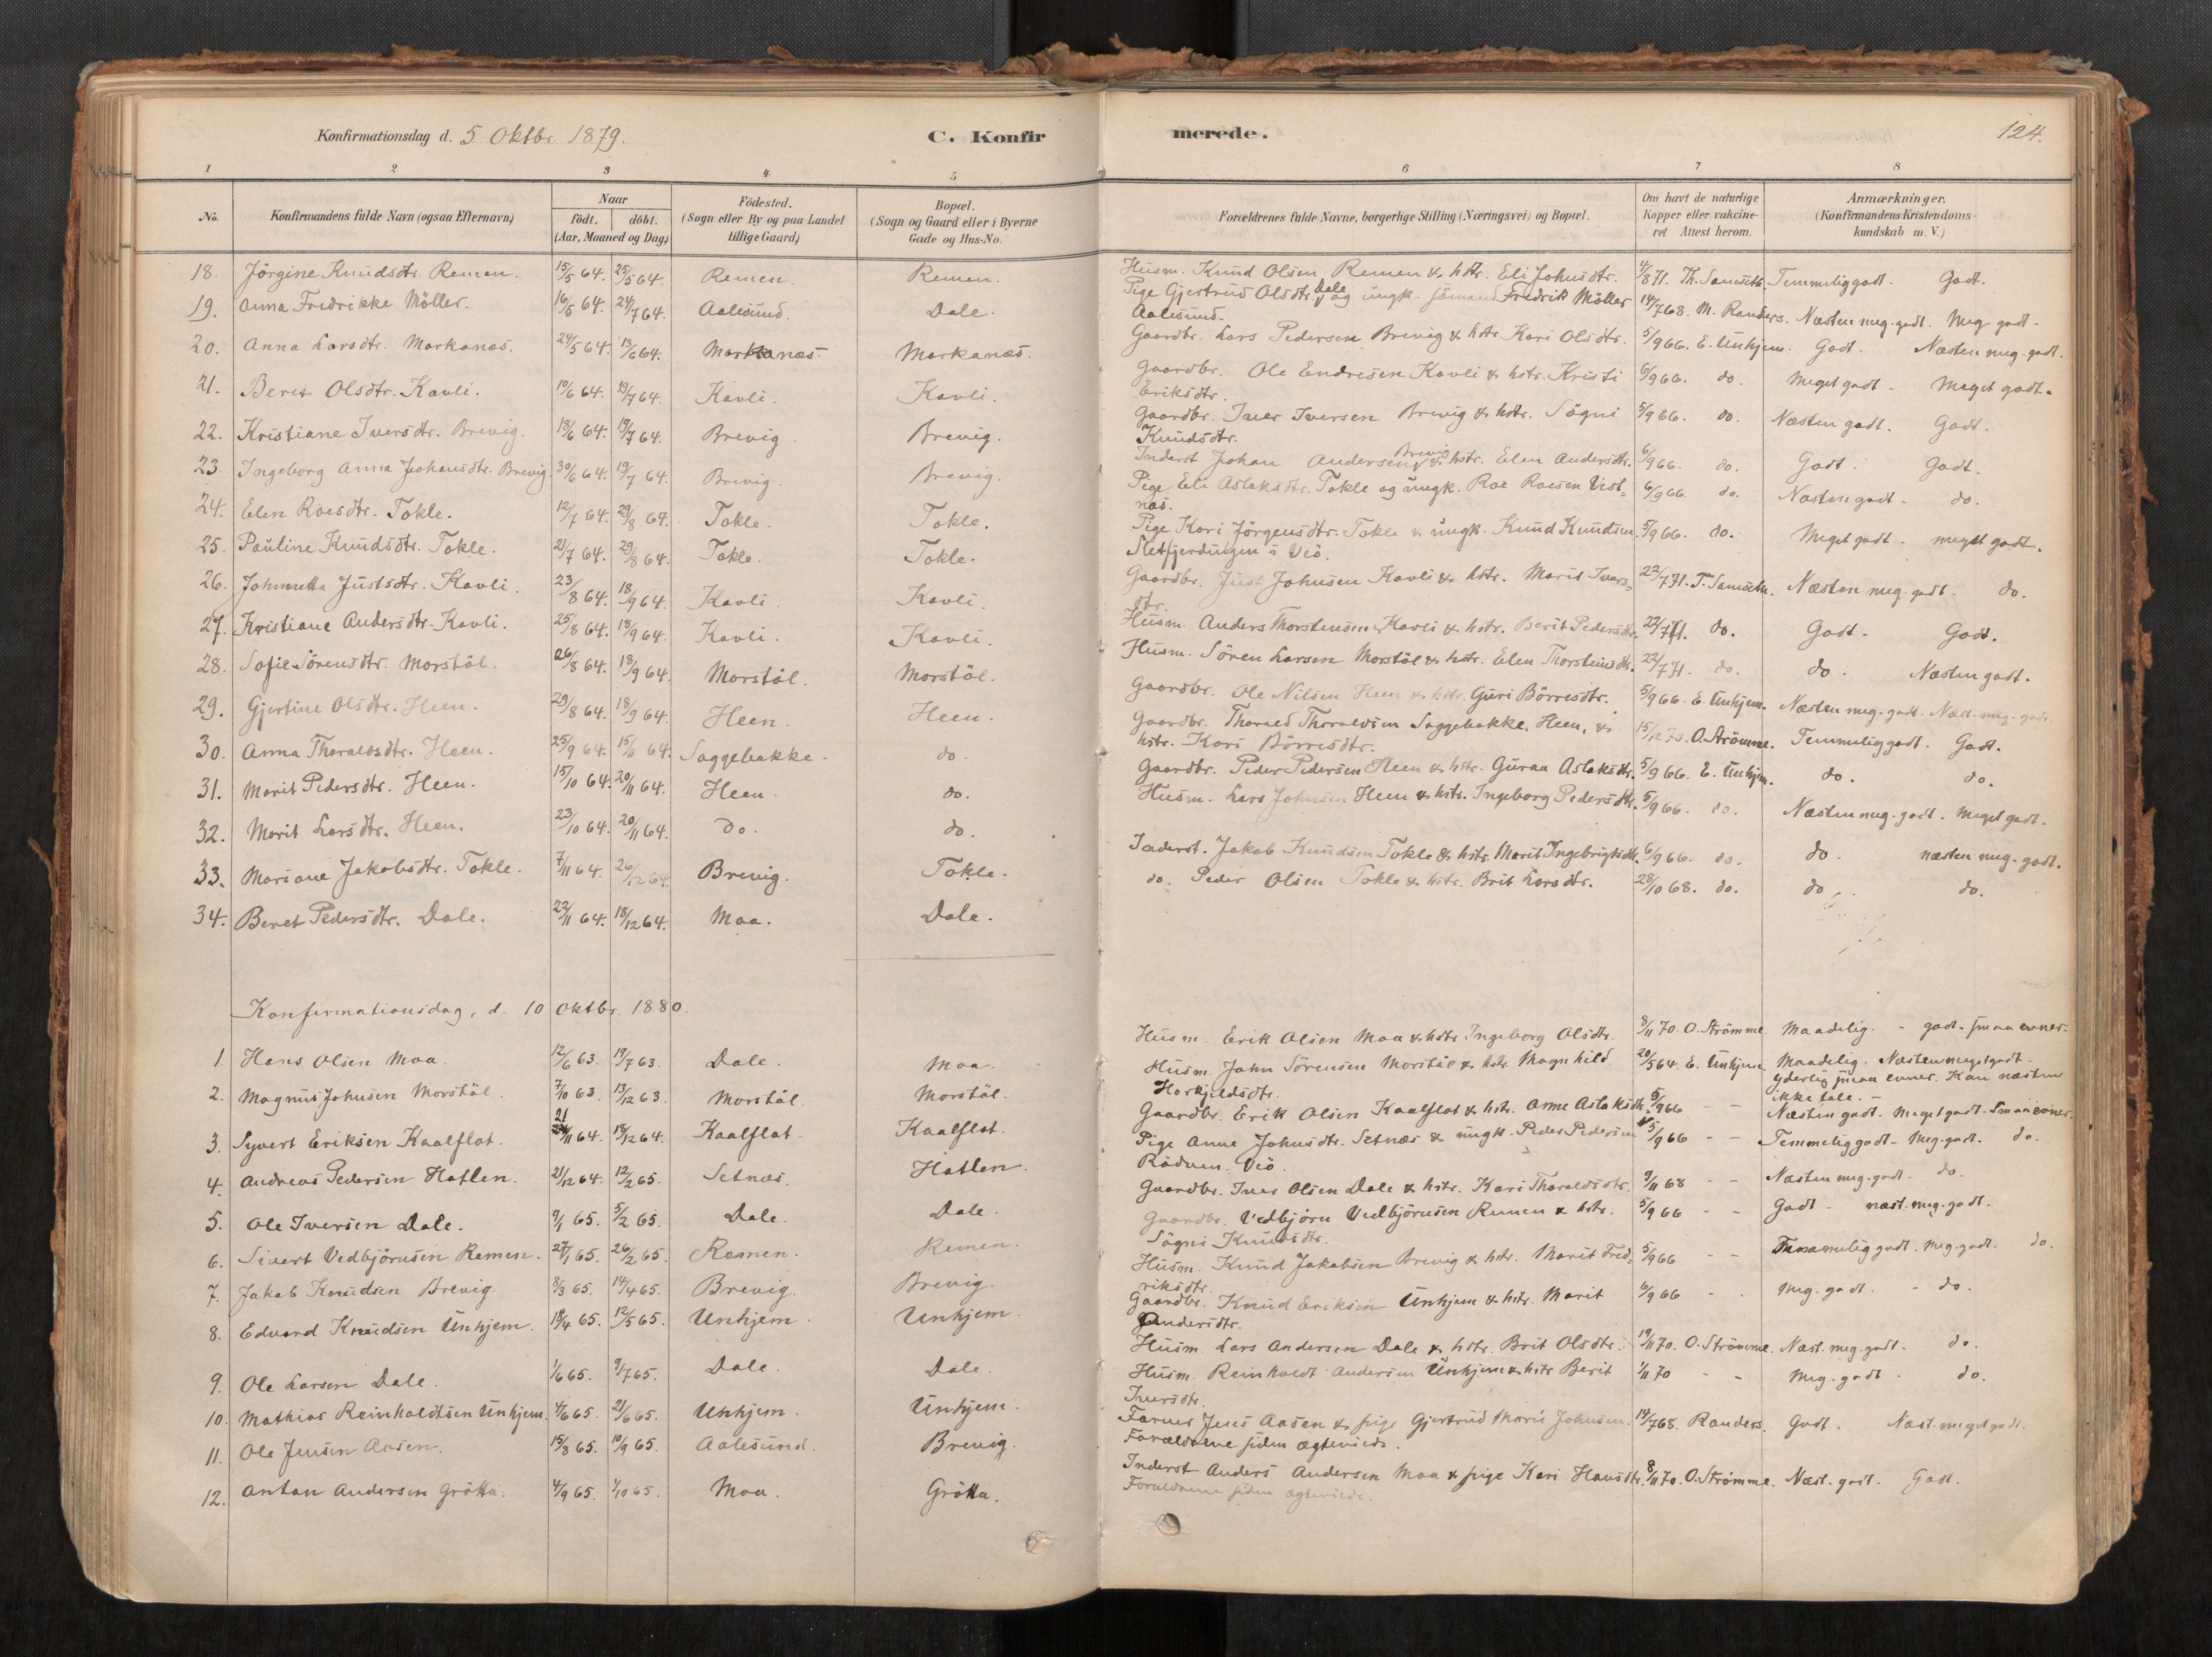 Konfirmationsdag d. 5 Oktbr. 1879.
C. Konfirmerede.
124.
1 2 3 4 5 6 7 8
No.
Konfirmandens fulde Navn (ogsaa Efternavn)
Naar
födt. döbt.
(Aar, Maaned og Dag)
Födested.
(Sogn eller By og paa Landet
tillige Gaard)
Bopæl.
(Sogn og Gaard eller i Byerne
Gade og Hus-No.
Forældrenes fulde Navne, borgerlige Stilling (Næringsvei) og Bopæl.
Om havt de naturlige
Kopper eller vakcine-
ret Attest herom.
Anmærkninger.
(Konfirmandens Kristendoms-
kundskab m. V.)
18. Jörgine Knudsdtr. Remen. 15/5 64. 25/5 64. Remen. Remen. Husm. Knud Olsen Remen & hstr. Eli Johnsdtr. 4/8 71. Th. Samseth. Temmelig godt. Godt.
19. Anna Fredrikke Möller. 16/5 64. 24/7 64. Aalesund. Dale. Pige Gjertrud Olsdtr. Dale og ungk. sömand Fredrik Möller 14/7 68. M. Randers. Næsten meg. godt. Meg godt.
Aalesund.
20. Anna Larsdtr. Morkanæs. 24/5 64. 13/6 64. Morkanæs. Morkanæs. Gaardbr. Lars Pedersen Brevig & hstr. Kari Olsdtr. 5/9 66. E. Unhjem. Godt. Næsten meg. godt.
21. Beret Olsdtr. Kavli. 19/6 64. 19/7 64. Kavli. Kavli. Gaardbr. Ole Endresen Kavli & hstr. Kristi 6/9 66. do. Meget godt - Meget godt.
Eriksdtr.
22. Kristiane Iversdtr. Brevig. 18/6 64. 19/7 64. Brevig. Brevig. Gaardbr. Iver Iversen Brevig & hstr. Sögni 5/9 66. do. Næsten godt. Godt.
Knudsdtr.
23. Ingeborg Anna Johansdtr. Brevig. 30/6 64. 19/7 64. Brevig. Brevig. Inderst Johan Andersen Brevig & hstr. Elen Andersdtr. 6/9 66. do. Godt. Godt.
24. Elen Roesdtr. Tokle. 12/7 64. 29/8 64. Tokle. Tokle. Pige Eli Aslaksdtr. Tokle og ungk. Roe Roesen Vest= 6/9 66. do. Næsten godt - do.
næs.
25. Pauline Knudsdtr. Tokle. 21/7 64. 29/8 64. Tokle. Tokle. Pige Kari Jörgensdtr. Tokle & ungk. Knud Knudsen 5/9 66. do. Meget godt - meget godt.
Sletfjerdingen i Veö.
26. Johnetta Justsdtr. Kavli. 23/8 64. 18/9 64. Kavli. Kavli. Gaardbr. Just Johnsen Kavli & hstr. Marit Ivers= 22/7 71. T. Samseth. Næsten meg. godt - do.
dtr.
27. Kristiane Andersdtr. Kavli. 25/8 64. 18/9 64. Kavli. Kavli. Husm. Anders Thorstensen Kavli & hstr. Berit Pedersdtr. 22/7 71. do. Godt. Godt.
28. Sofie Sörensdtr. Morstöl. 26/8 64. 18/9 64. Morstöl. Morstöl. Husm. Sören Larsen Morstöl & hstr. Elen Thorsteinsdtr. 22/7 71. do. do. Næsten godt.
29. Gjertine Olsdtr. Heen. 29/8 64. 18/9 64. Heen. Heen. Gaardbr. Ole Nilsen Heen & hstr. Guri Börresdtr. 5/9 66. E. Unhjem. Næsten meg. godt. Næst. meg. godt.
30. Anna Thoraldsdtr. Heen. 25/9 64. 15/11 64. Saggebakke. do. Gaardbr. Thorald Thoraldsen Saggebakke, Heen, & 15/12 70. O. Strömme. Temmelig godt. Godt.
hstr. Kari Börresdtr.
31. Marit Pedersdtr. Heen. 15/10 64. 20/11 64. Heen. do. Gaardbr. Peder Pedersen Heen & hstr. Guraa Aslaksdtr. 5/9 66. E. Unhjem. do. do.
32. Marit Larsdtr. Heen. 23/10 64. 20/11 64. do. do. Husm. Lars Johnsen Heen & hstr. Ingeborg Pedersdtr. 5/9 66. do. Næsten meg. godt. Meget godt.
33. Mariane Jakobsdtr. Tokle. 7/11 64. 26/12 64. Brevig. Tokle. Inderst. Jakob Knudsen Tokle & hstr. Marit Ingebrigtsdtr. 6/9 66. do. do. næsten meg. godt.
34. Beret Pedersdtr. Dale. 22/11 64. 18/12 64. Moa. Dale. do. Peder Olsen Tokle & hstr. Brit Larsdtr. 28/10 68. do. do. do.
Konfirmationsdag, d. 10 Oktbr. 1880.
1 Hans Olsen Moa. 12/6 63. 19/7 63. Dale. Moa. Husm. Erik Olsen Moa & hstr. Ingeborg Olsdtr. 8/11 70. O. Strömme. Maadelig. - godt. smaa evner.
2. Magnus Johnsen Morstöl. 7/10 63. 13/12 63. Morstöl. Morstöl. Husm. John Sörensen Morstöl & hstr. Magnhild 20/5 64. E. Unhjem. Maadelig. Næsten meget godt -
Horkjeldsdtr. yderlig smaa evner. Kan næsten
ikke tale. -
3. Syvert Eriksen Kaalflot. 21/11 64. 18/12 64. Kaalflot. Kaalflot. Gaardbr. Erik Olsen Kaalflot & hstr. Anne Aslaksdtr. 5/9 66 - - Næsten godt. Meget godt. Smaa evner.
4. Andreas Pedersen Hatlen. 21/12 64. 12/2 65. Setnæs. Hatlen. Pige Anne Johnsdtr. Setnæs & ungk. Peder Pedersen 5/9 66 - - Temmelig godt - Meg. godt. do.
Rödven. Veö.
5. Ole Iversen Dale. 9/1 65. 5/2 65. Dale. Dale. Gaardbr. Iver Olsen Dale & hstr. Kari Thoraldsdtr. 9/11 68 - - Næsten meg. godt - do.
6. Sivert Vedbjörnsen Remen. 27/1 65. 26/2 65. Remen. Remen. Gaardbr. Vedbjörn Vedbjörnsen Remen & hstr. 5/9 66 - - Godt - næst. meg. godt.
Sögni Knudsdtr.
7. Jakob Knudsen Brevig 8/3 65. 14/4 65. Brevig. Brevig. Husm. Knud Jakobsen Brevig & hstr. Marit Fred= 5/9 66 - - Temmelig godt. Meg. godt. do.
riksdtr.
8. Edvard Knudsen Unhjem. 18/4 65. 12/5 65. Unhjem. Unhjem. Gaardbr. Knud Eriksen Unhjem & hstr. Marit 6/9 66 - - Meg. godt. - do.
Andersdtr.
9. Ole Larsen Dale. 1/6 65. 9/7 65. Dale. Dale. Husm. Lars Andersen Dale & hstr. Brit Olsdtr. 19/11 70. O. Strömme. Næst. meg. godt. do.
10. Mathias Reinholdtsen Unhjem. 4/6 65. 21/6 65. Unhjem. Unhjem. Husm. Reinholdt Andersen Unhjem & hstr Berit 1/11 70 - - Meg. godt - do.
Iversdtr.
11. Ole Jensen Aasen. 15/8 65. 10/9 65. Aalesund. Brevig. Farver Jens Aasen & pige Gjertrud Marie Johnsen. 14/7 68. Randers. Godt. Næst. meget godt.
Forældrene siden ægteviede.
12. Anton Andersen Grötta. 4/9 65. 1/10 65. Moa. Grötta. Inderst Anders Andersen Moa & pige Kari Hansdtr. 8/11 70. O. Strömme. Næst. godt. Godt.
Forældrene siden ægteviede.